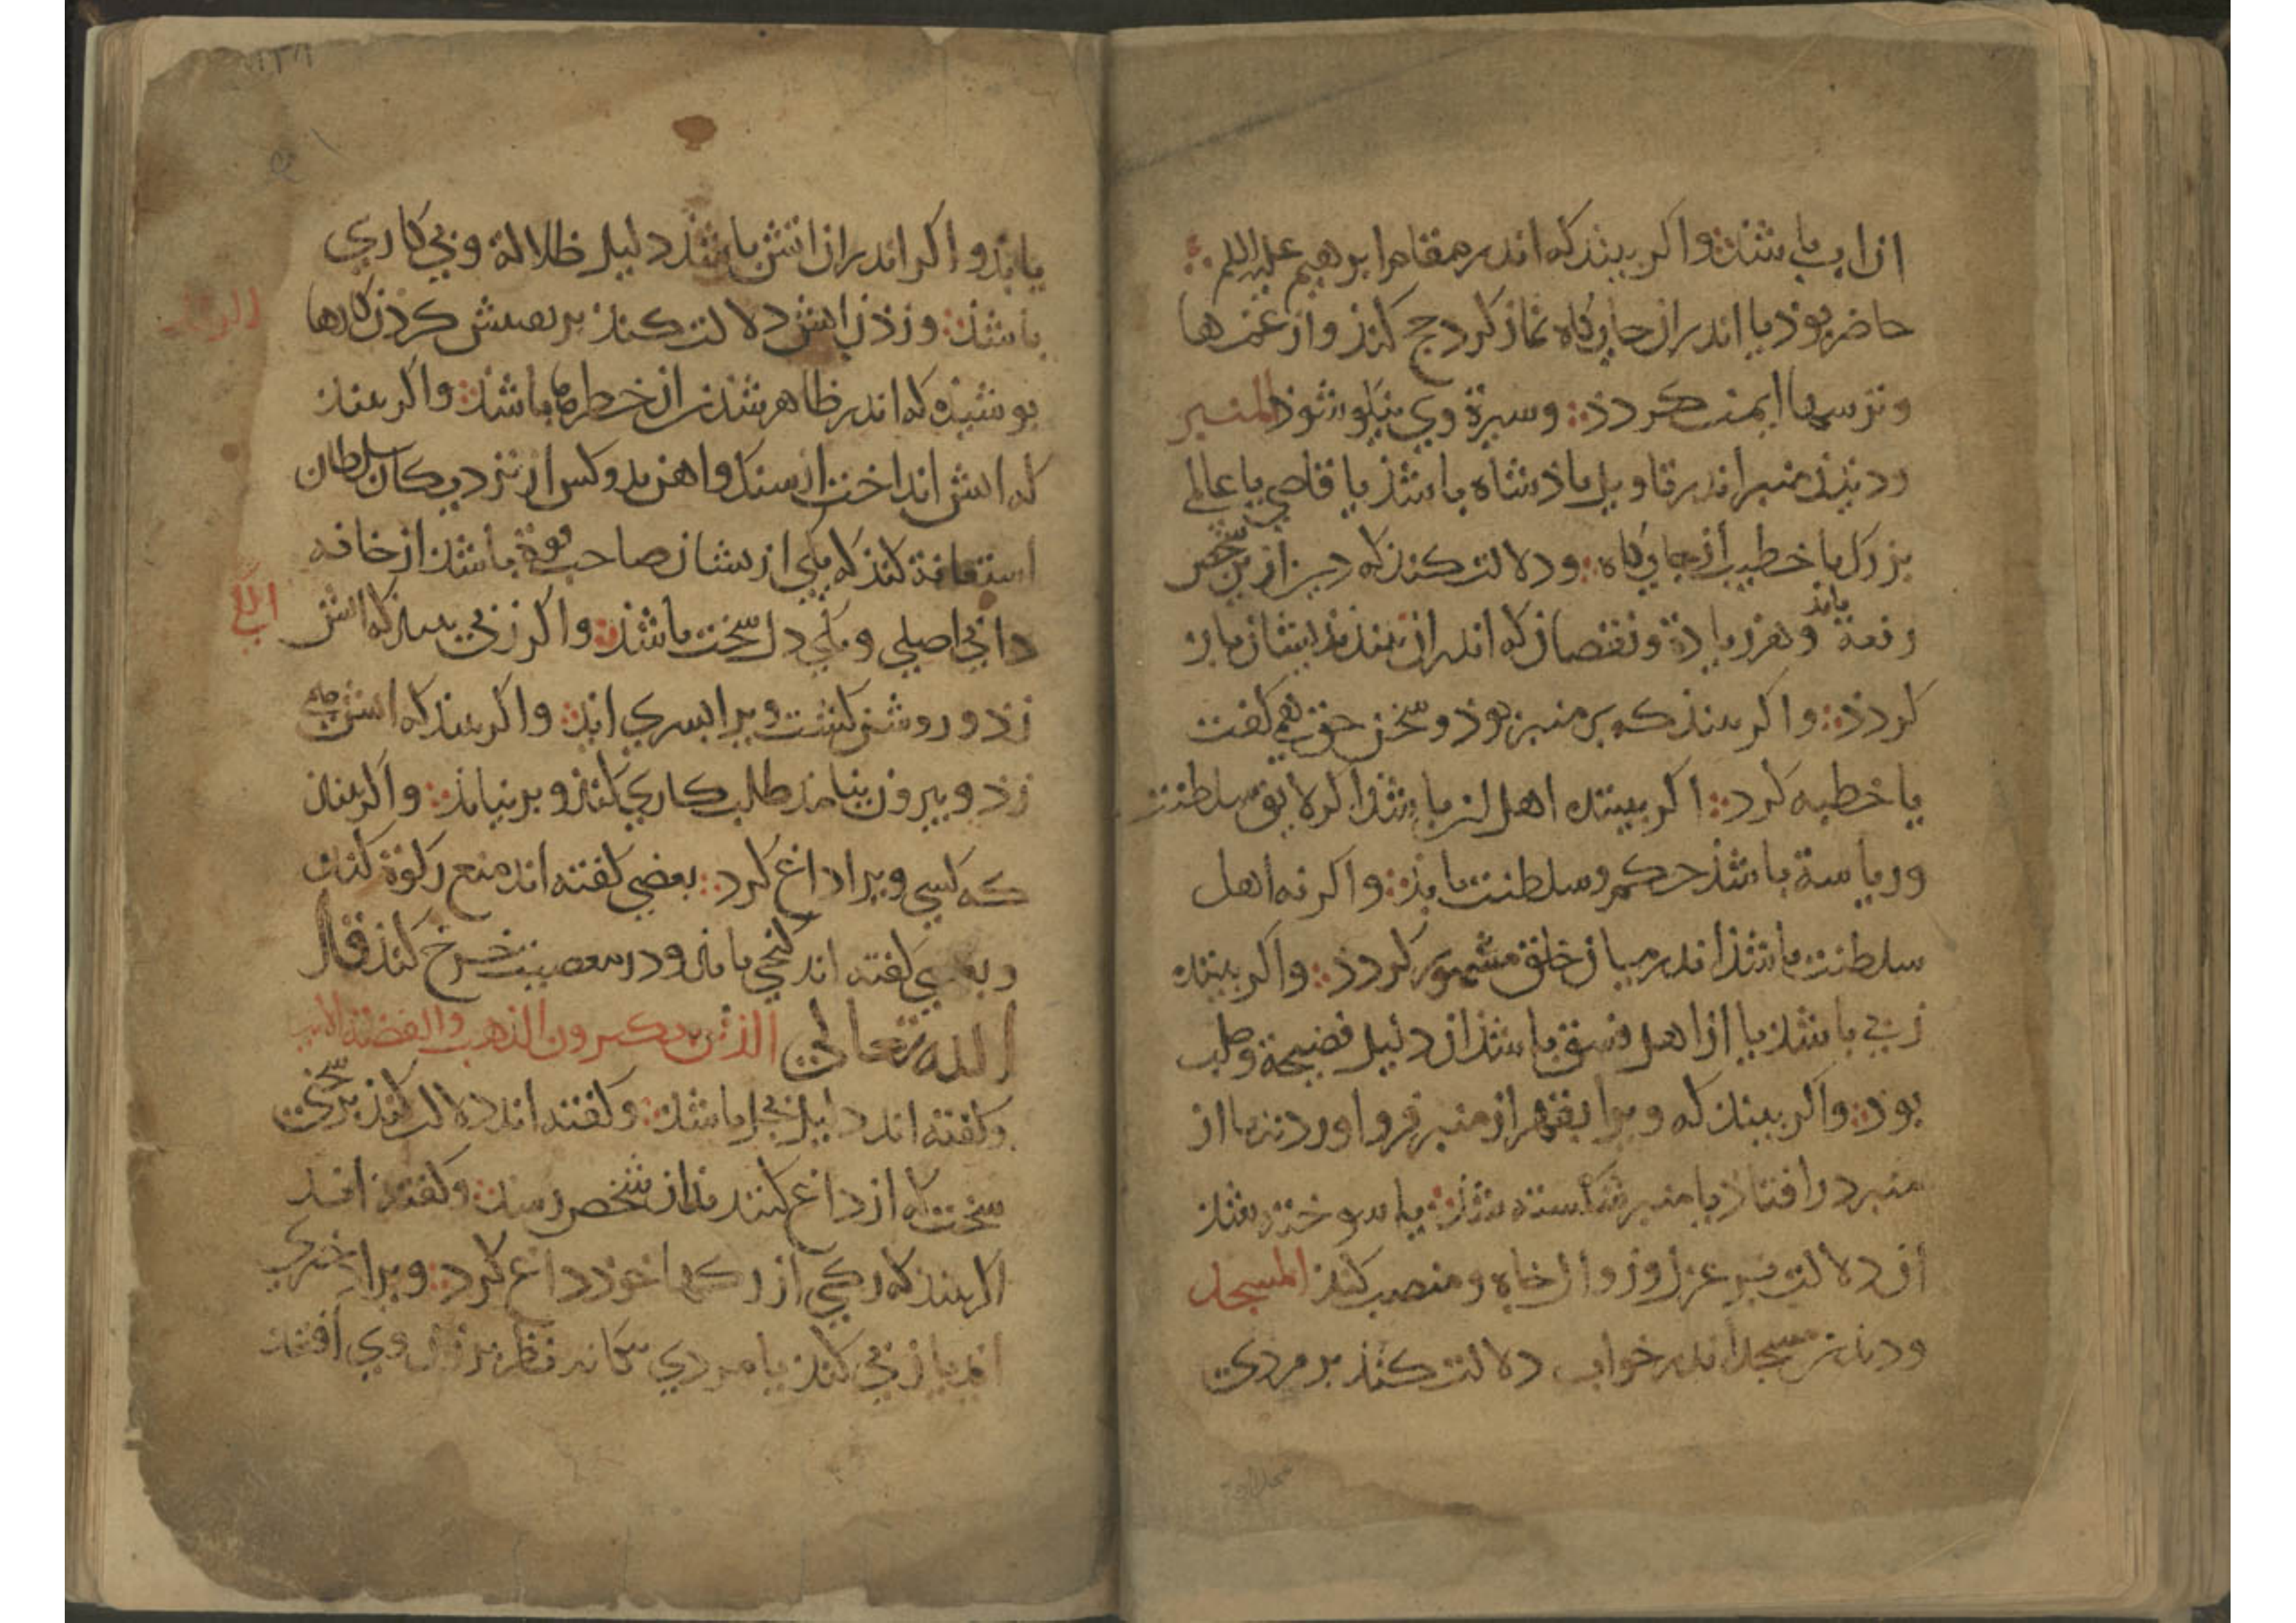 ازان باشذ واکر بیند که اندر مقام ابرهیم علیه السلم
حاضر بوذ یا اندران جایکاه نماز کرد حج کنذ واز غمها
وترسها ایمن کردذ وسیرة وی نیکو شوذ المنبر
ودیذن منبر اندر تاویل باذشاه باشذ یا قاضی یا عالمی
بزرک یا خطیب ان جایکاه ودلالت کنذ که دیر از بن
رفعة یابذ وهر زیادة ونقصان که اندران بینذ بذیشان باز
کردذ واکر بیند که بر منبر بوذ وسخن حق همی کفت
یا خطبه کرد اکر بیننده اهل ان باشذ اکر لایق سلطنت
وریاسة باشذ حکم وسلطنت یابذ واکر نه اهل
سلطنت باشذ اندر میان خلق مشهور کردذ واکر بیننده
زنی باشذ یا از اهل فسق باشذ ان دلیل فضیحة وصلب
بوذ واکر بیند که ویرا بقهر از منبر فرو اوردند یا از
منبر در افتاذ یا منبر شکسته شذ یا سوخته شذ
ان دلالت بر عزل وزوال جاه ومنصب کنذ المسجد
ودیذن مسجد اندر خواب دلالت کنذ بر مردی
یابذ واکر اندران اتش باشذ دلیل ظلالة وبی کاری
باشذ وزذن اتش دلالت کنذ بر تفتیش کردن کارها
بوشیذه که اندر ظاهر شدن ان خطرها باشذ واکر بیند
که اتش انداخت از سنک واهن بدو کس از نزدیکان سلطان
استعانة کنذ که یکی ازیشان صاحب قوة باشذ از خانه
دانی اصلی ویکی دل سخت باشذ واکر زنی بیند که اتش
زد وروشن کشت ویرا بسری ایذ واکر بیند که اتش
زد وبیرون نیامذ طلب کاری کنذ وبر نیایذ واکر بیند
که کسی ویرا داغ کرد بعضی کفته اند منع زکوة کنذ
وبعضی کفته اند کنجی یابذ ودر معصیت خرج کنذ قال
الله تعالی الذین یکنزون الذهب والفضة الایه
وکفته اند دلیل باشذ وکفته اند دلالت کنذ بر سخنی
سخت که از داغ کننده بذان شخص رسذ وکفته اند
اکر بیند که رکی از رکها خوذ داغ کرد ویرا دختری
ایذ یا زنی کنذ یا مردی بیکانه نظر بر زن وی افتذ
الکی